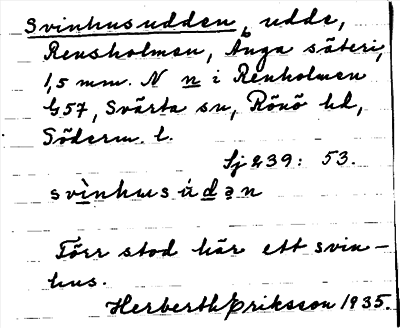 Svinhusudden, udde,
Rensholmen, Ånga säteri,
1,5 mm. N n i Renholmen
G57, Svärta sn, Rönö hd,
Söderm. l.
Sj 239: 53.
svìnhus údən
Förr stod här ett svin-
hus.
Herberth Eriksson 1935.